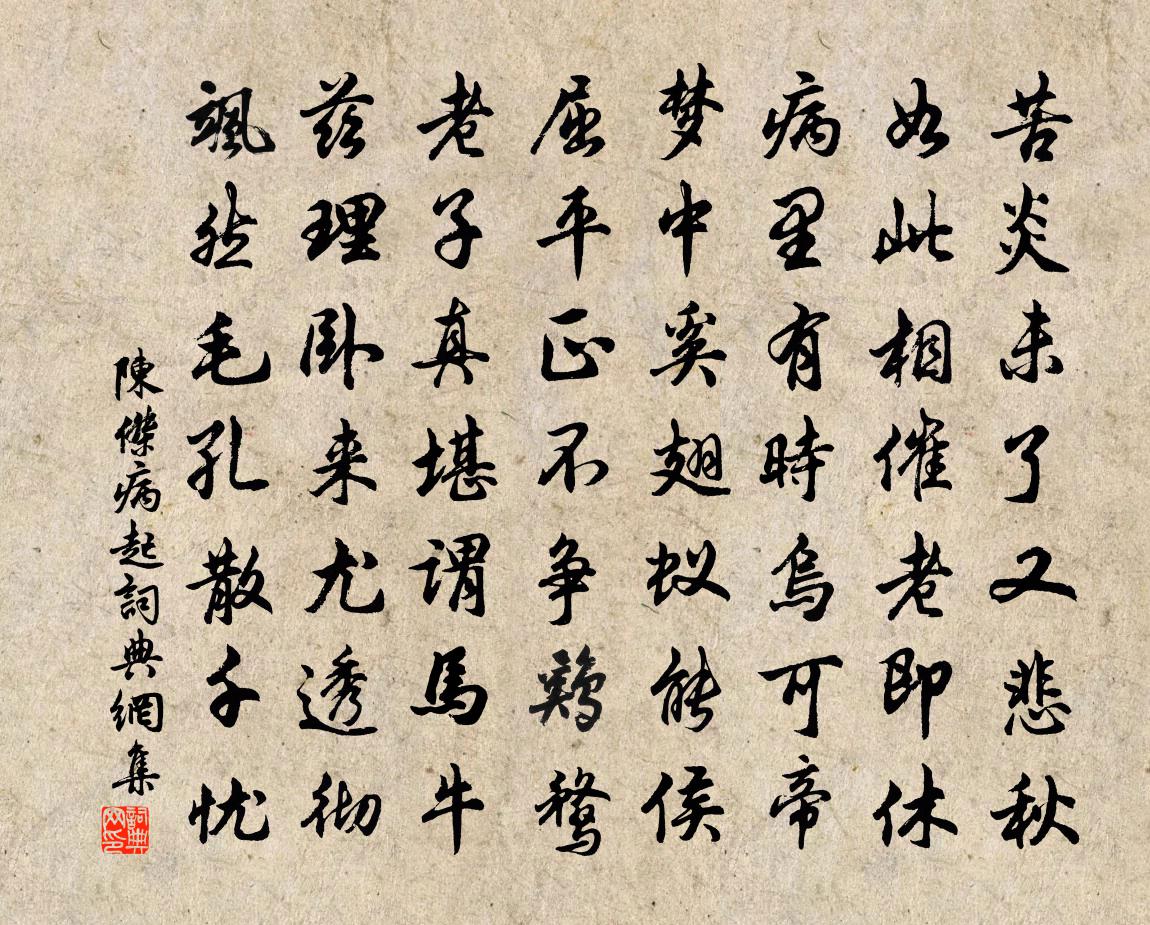 苦炎未了又悲秋
如此相催老即休
病里有時烏可帝
梦中奚翅蚁能侯
屈平正不争鷄鶩
老子真堪謂馬牛
兹理卧来尤透彻
飒然毛孔散千忧
陳傑病起詞典網集
詞典網印